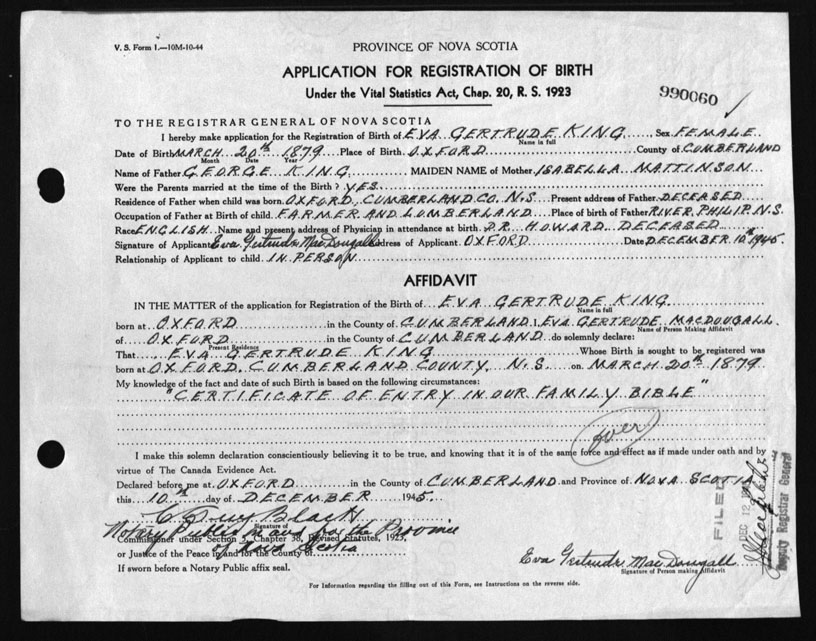 V. S. Form 1.—10M-10-44
PROVINCE OF NOVA SCOTIA
APPLICATION FOR REGISTRATION OF BIRTH
Under the Vital Statistics Act, Chap. 20, R. S. 1923
990060
TO THE REGISTRAR GENERAL OF NOVA SCOTIA
I hereby make application for the Registration of Birth of EVA GERTRUDE KING Sex FEMALE
Name in full
Date of Birth MARCH 20th 1879 Place of Birth OXFORD County of CUMBERLAND
Month Date Year
Name of Father GEORGE KING MAIDEN NAME of Mother ISABELLA MATTINSON
Were the Parents married at the time of the Birth? YES
Residence of Father when child was born OXFORD, CUMBERLAND CO. N.S Present address of Father DECEASED
Occupation of Father at Birth of child FARMER AND LUMBERLAND Place of birth of Father RIVER PHILIP N.S.
Race ENGLISH Name and present address of Physician in attendance at birth DR HOWARD DECEASED
Signature of Applicant Eva Gertrude MacDougall Address of Applicant OXFORD Date DECEMBER 10th 1945.
Relationship of Applicant to child IN PERSON
AFFIDAVIT
IN THE MATTER of the application for Registration of the Birth of EVA GERTRUDE KING
Name in full
born at OXFORD in the County of CUMBERLAND I, EVA GERTRUDE MACDOUGALL
Name of Person Making Affidavit
of OXFORD in the County of CUMBERLAND do solemnly declare:
Present Residence
That EVA GERTRUDE KING Whose Birth is sought to be registered was
born at OXFORD. CUMBERLAND COUNTY, N.S on MARCH 20th 1879
My knowledge of the fact and date of such Birth is based on the following circumstances:
"CERTIFICATE OF ENTRY IN OUR FAMILY BIBLE"
over
I make this solemn declaration conscientiously believing it to be true, and knowing that it is of the same force and effect as if made under oath and by
virtue of The Canada Evidence Act.
Declared before me at OXFORD in the County of CUMBERLAND and Province of NOVA SCOTIA
this 10th day of DECEMBER 1945.
Black
Signature of
Notary Public in and for the Province
Commissioner under Section 5, Chapter 38, Revised Statutes, 1923,
of Nova Scotia
or Justice of the Peace in and for the County of
If sworn before a Notary Public affix seal.
Eva Gertrude MacDougall
Signature of Person making Affidavit
For Information regarding the filling out of this Form, see Instructions on the reverse side.
FILED
DEC 12
Deputy Registrar General